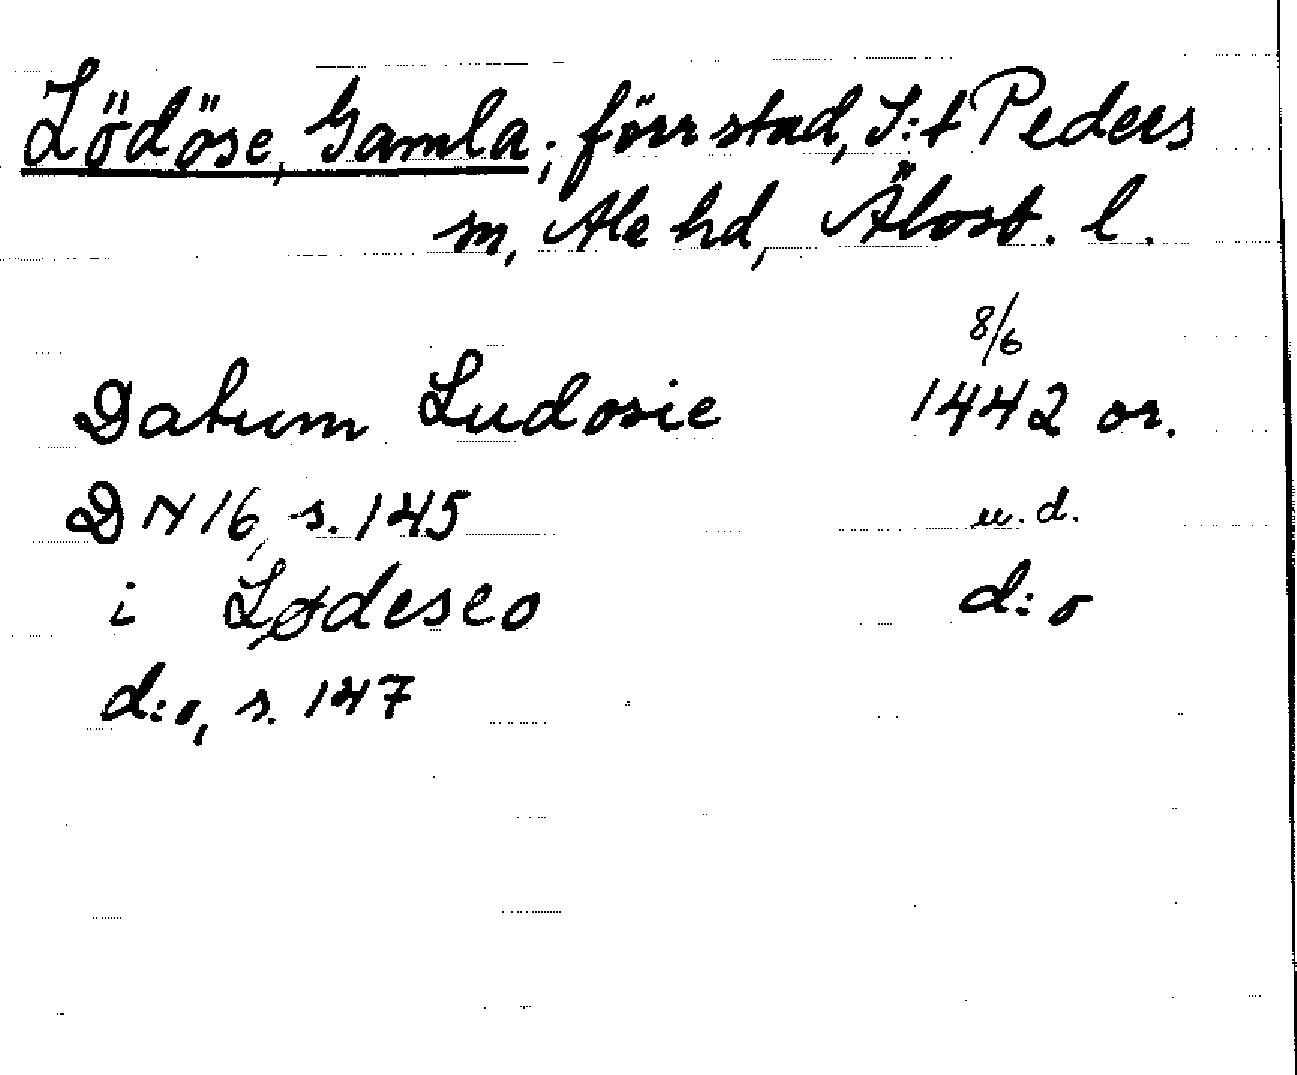 Lödöse, Gamla; förr stad, S:t Peders
sn, Ale hd, Älvsb. l.
8/6
Datum Ludosie 1442 or.
DN 16, s. 145 u. d.
i Lødeseo d:o
d:o, s. 147